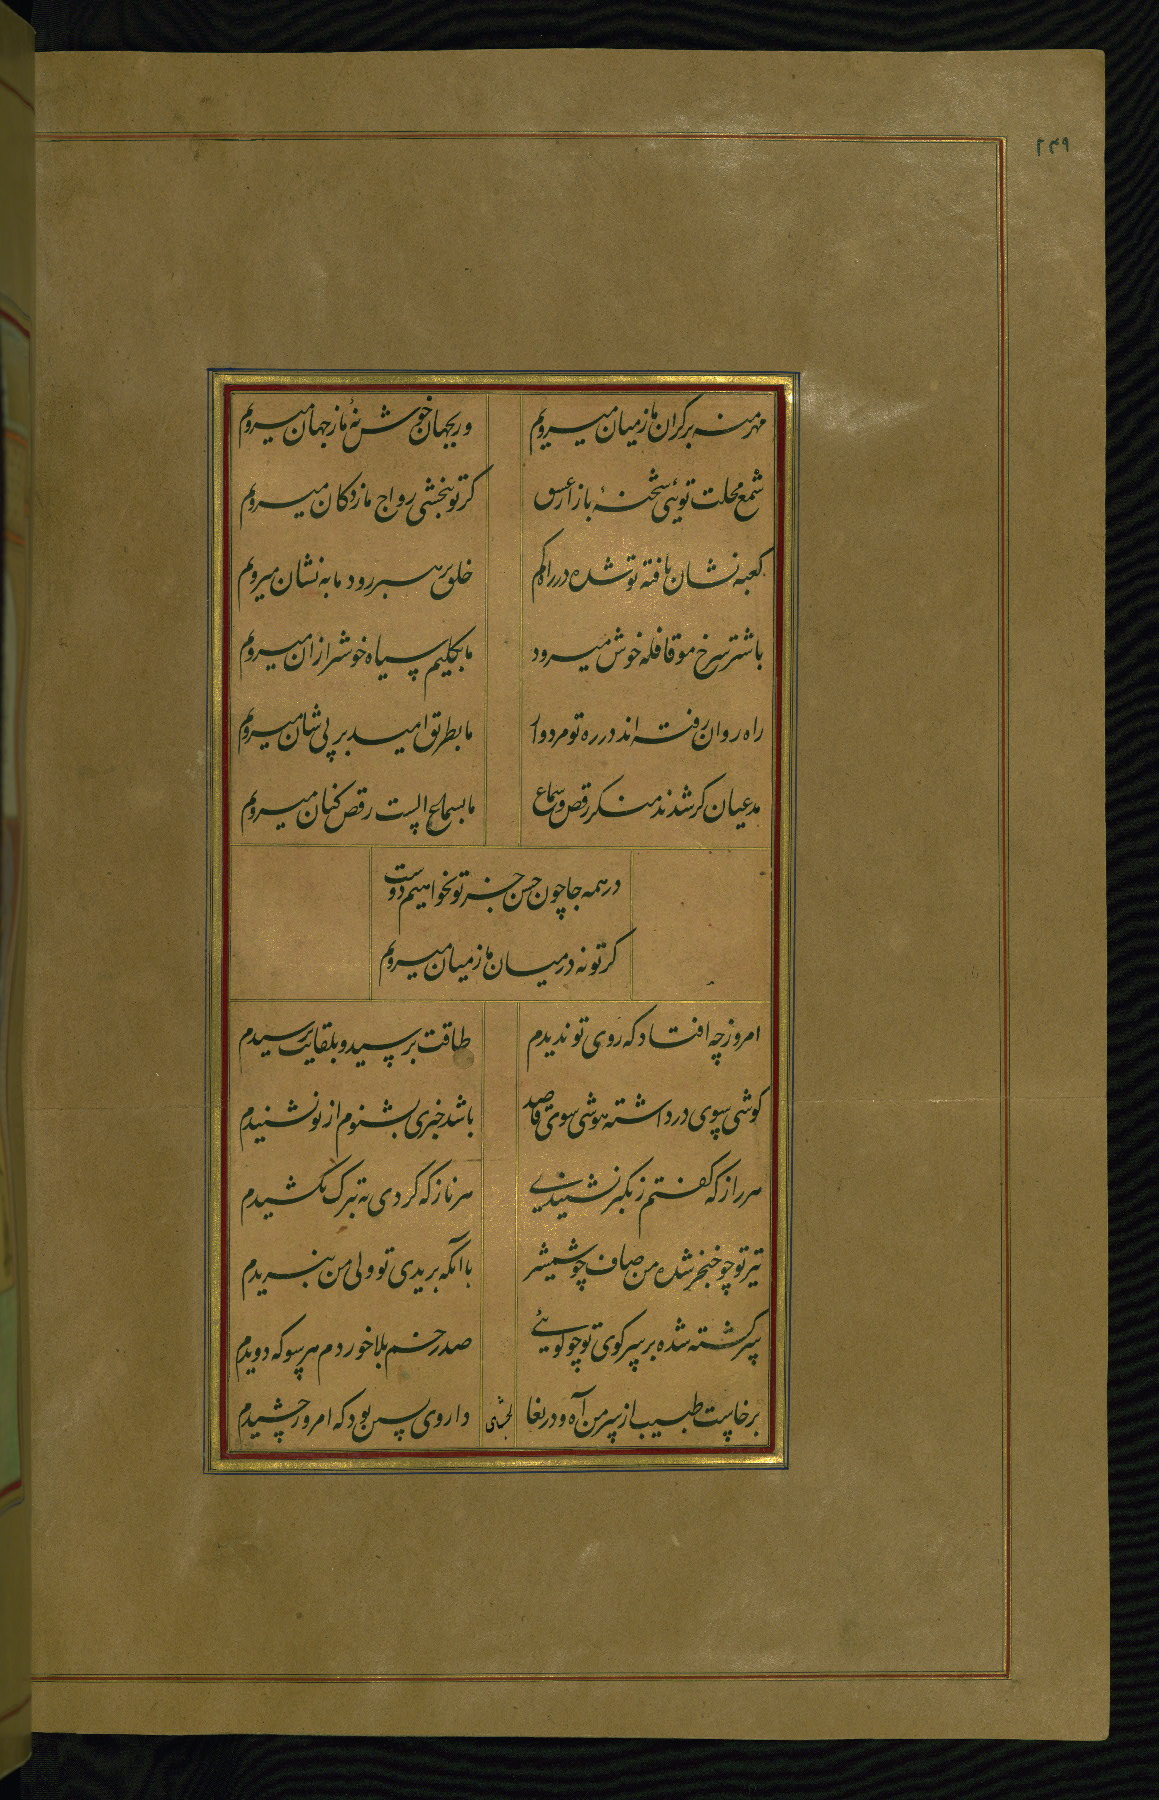 ۲۴۹
مهر منه بر کران ما ز میان میرویم
ور بجهان خوش نهٔ ما ز جهان میرویم
شمع محلت توئی شحنهٔ بازار عسس
کر تو نبخشی رواج ما ز دکان میرویم
کعبه نشان یافته تو شده در راه کم
خلق برهبر رود ما به نشان میرویم
با شتر سرخ مو قافله خوش میرود
ما بکلیم سیاه خوشتر ازان میرویم
راه روان رفته اند در ره تو مردوار
ما بطریق امید بر پی شان میرویم
مدعیان کر شدند منکر رقص و سماع
ما بسماع الست رقص کنان میرویم
در همه جا چون حسن جز تو نخواهیم دوست
کر تو نه در میان ما ز میان میرویم
امروز چه افتاد که روی تو ندیدم
طاقت برسید و بلقایت نرسیدم
کوشی بسوی در داشته هوشی بسوی قاصد
باشد خبری بشنوم از تو نشنیدم
هر راز که کفتم ز تکبر نشنیدی
هر ناز که کردی به تبرک بکشیدم
تیر تو چو خنجر شده من صاف چو شمشیر
با آنکه بریدی تو ولی من نبریدم
سر کشته شده بر سر کوی تو چو کوئی
صد زخم بلا خوردم هر سو که دویدم
برخاست طبیب از سر من آه و دریغا
داروی پسن بود که امروز چشیدم